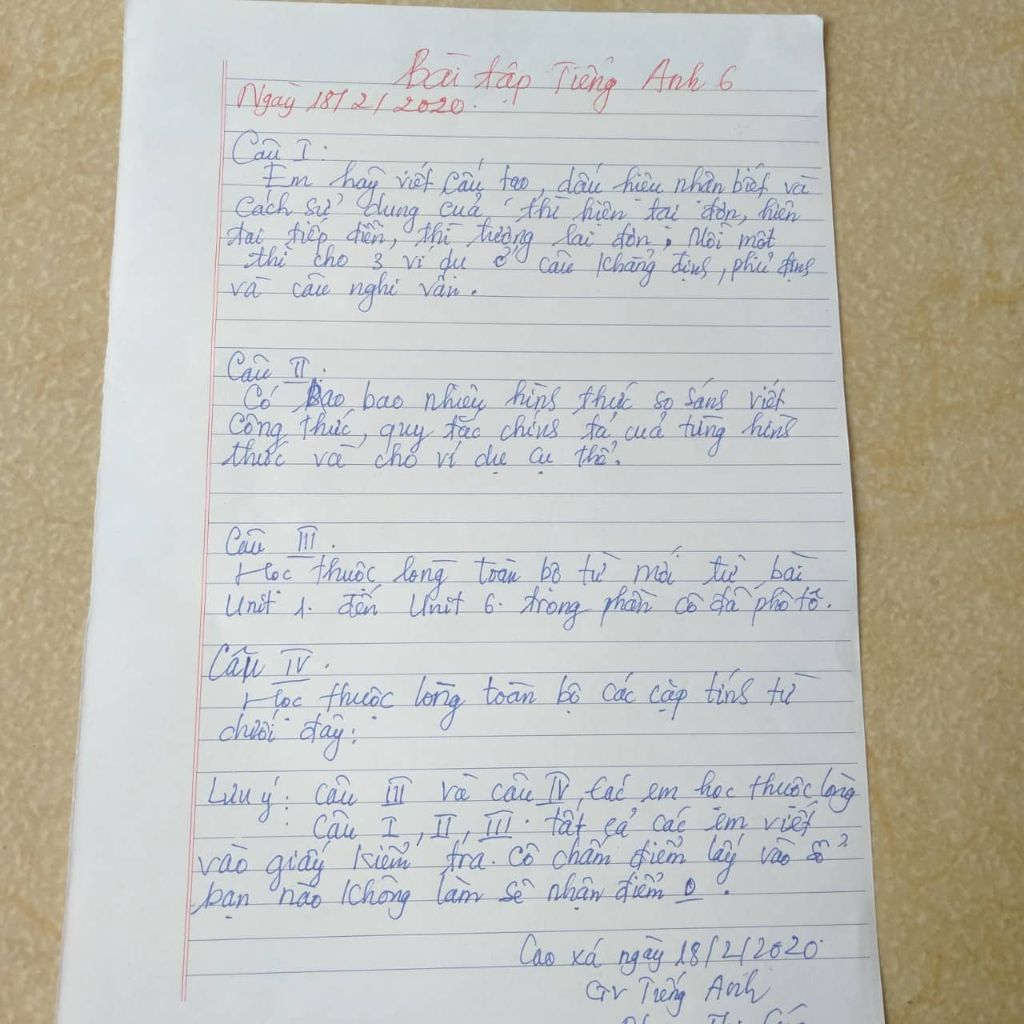 Bài tập Tiếng Anh 6
Ngày 18/2/2020.
Câu I:
Em hãy viết cấu tạo, dấu hiệu nhận biết và
cách sử dụng của thì hiện tại đơn, hiện
tại tiếp diễn, thì tương lai đơn, Mỗi một
thì cho 3 ví dụ ở câu khẳng định, phủ định
và câu nghi vấn.
Câu II.
Có bao nhiêu hình thức so sánh viết
công thức, quy tắc chính tả của từng hình
thức và cho ví dụ cụ thể.
Câu III.
Học thuộc lòng toàn bộ từ mới từ bài
Unit 1. đến Unit 6. trong phần cô đã phô tô.
Câu IV.
Học thuộc lòng toàn bộ các cặp tính từ
dưới đây:
Lưu ý: Câu III và câu IV, các em học thuộc lòng
Câu I, II, III. tất cả các em viết
vào giấy kiểm tra. Cô chấm điểm lấy vào sổ
bạn nào không làm sẽ nhận điểm 0.
Cao xá ngày 18/2/2020
GV Tiếng Anh